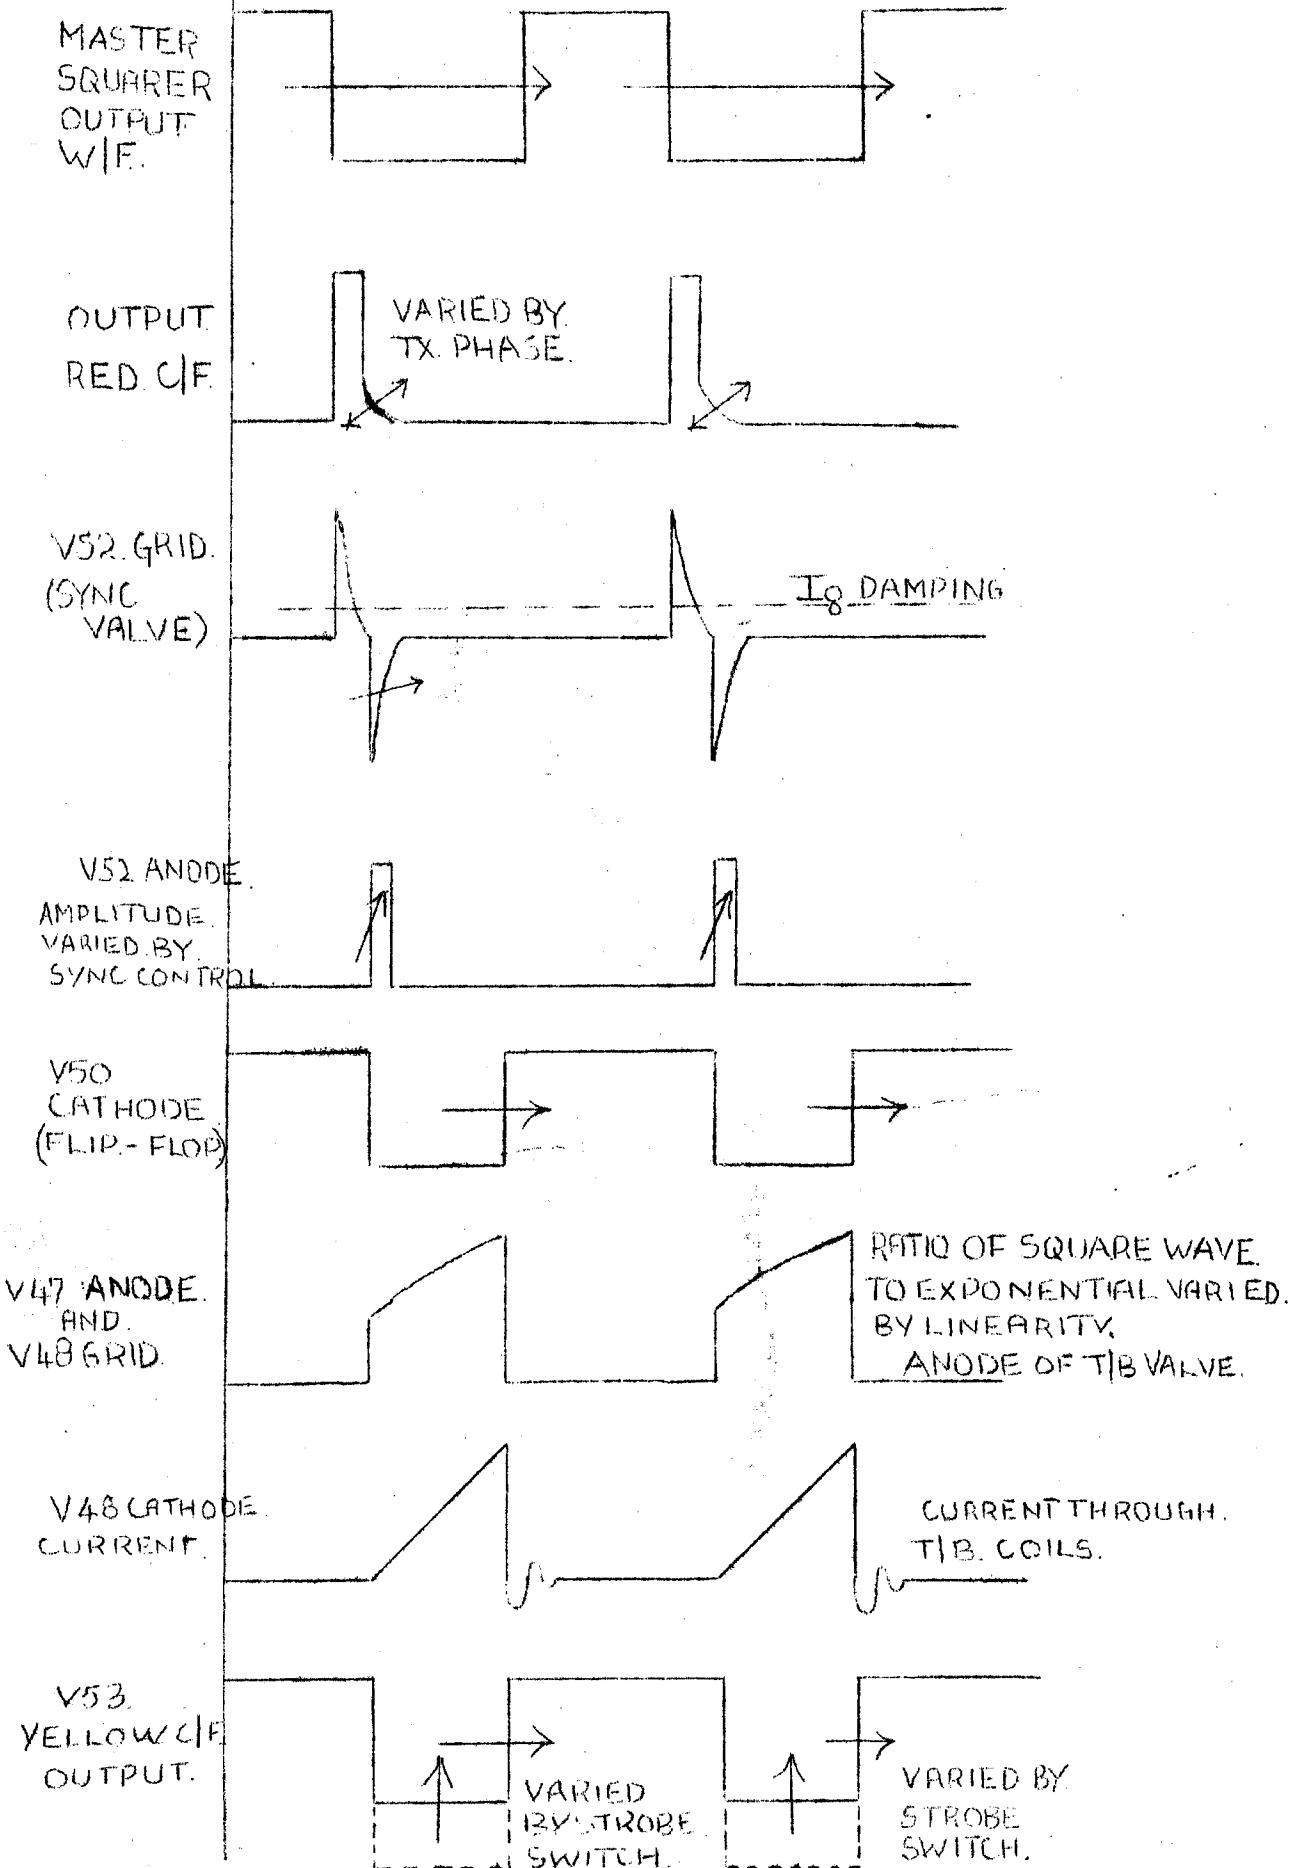 MASTER
SQUARER
OUTPUT
W/F.
OUTPUT
RED. C/F.
VARIED BY.
TX. PHASE.
V52. GRID.
(SYNC
VALVE)
Ig DAMPING
V52 ANODE.
AMPLITUDE.
VARIED. BY.
SYNC CONTROL.
V50
CATHODE
(FLIP.-FLOP)
V47 ANODE.
AND.
V48 GRID.
RATIO OF SQUARE WAVE.
TO EXPONENTIAL VARIED.
BY LINEARITY.
ANODE OF T/B VALVE.
V48 CATHODE.
CURRENT.
CURRENT THROUGH.
T/B. COILS.
V53.
YELLOW C/F.
OUTPUT.
VARIED
BY STROBE
SWITCH.
VARIED BY
STROBE
SWITCH.